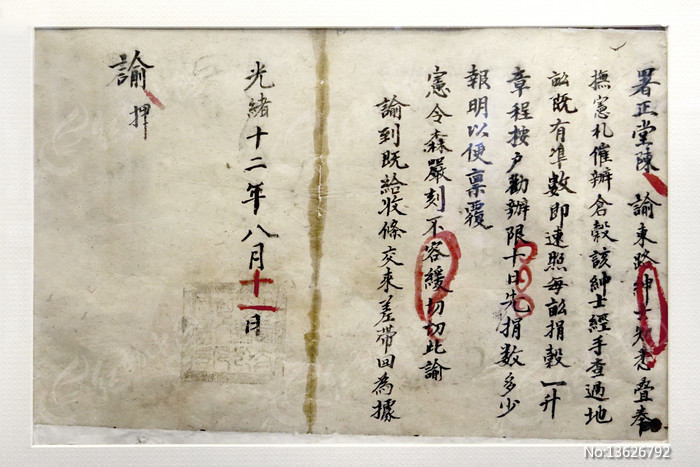 署正堂陳 諭東路紳士知悉疊奉
撫憲札催辦倉穀該紳士經手查過地
畝既有準數即速照每畝捐穀一升
章程按戶勸辦限十日先捐數多少
報明以便稟覆
憲令森嚴刻不容緩切切此諭
諭到既給收條交來差帶回為據
光緒十二年八月十一日
諭 押
No:13626792